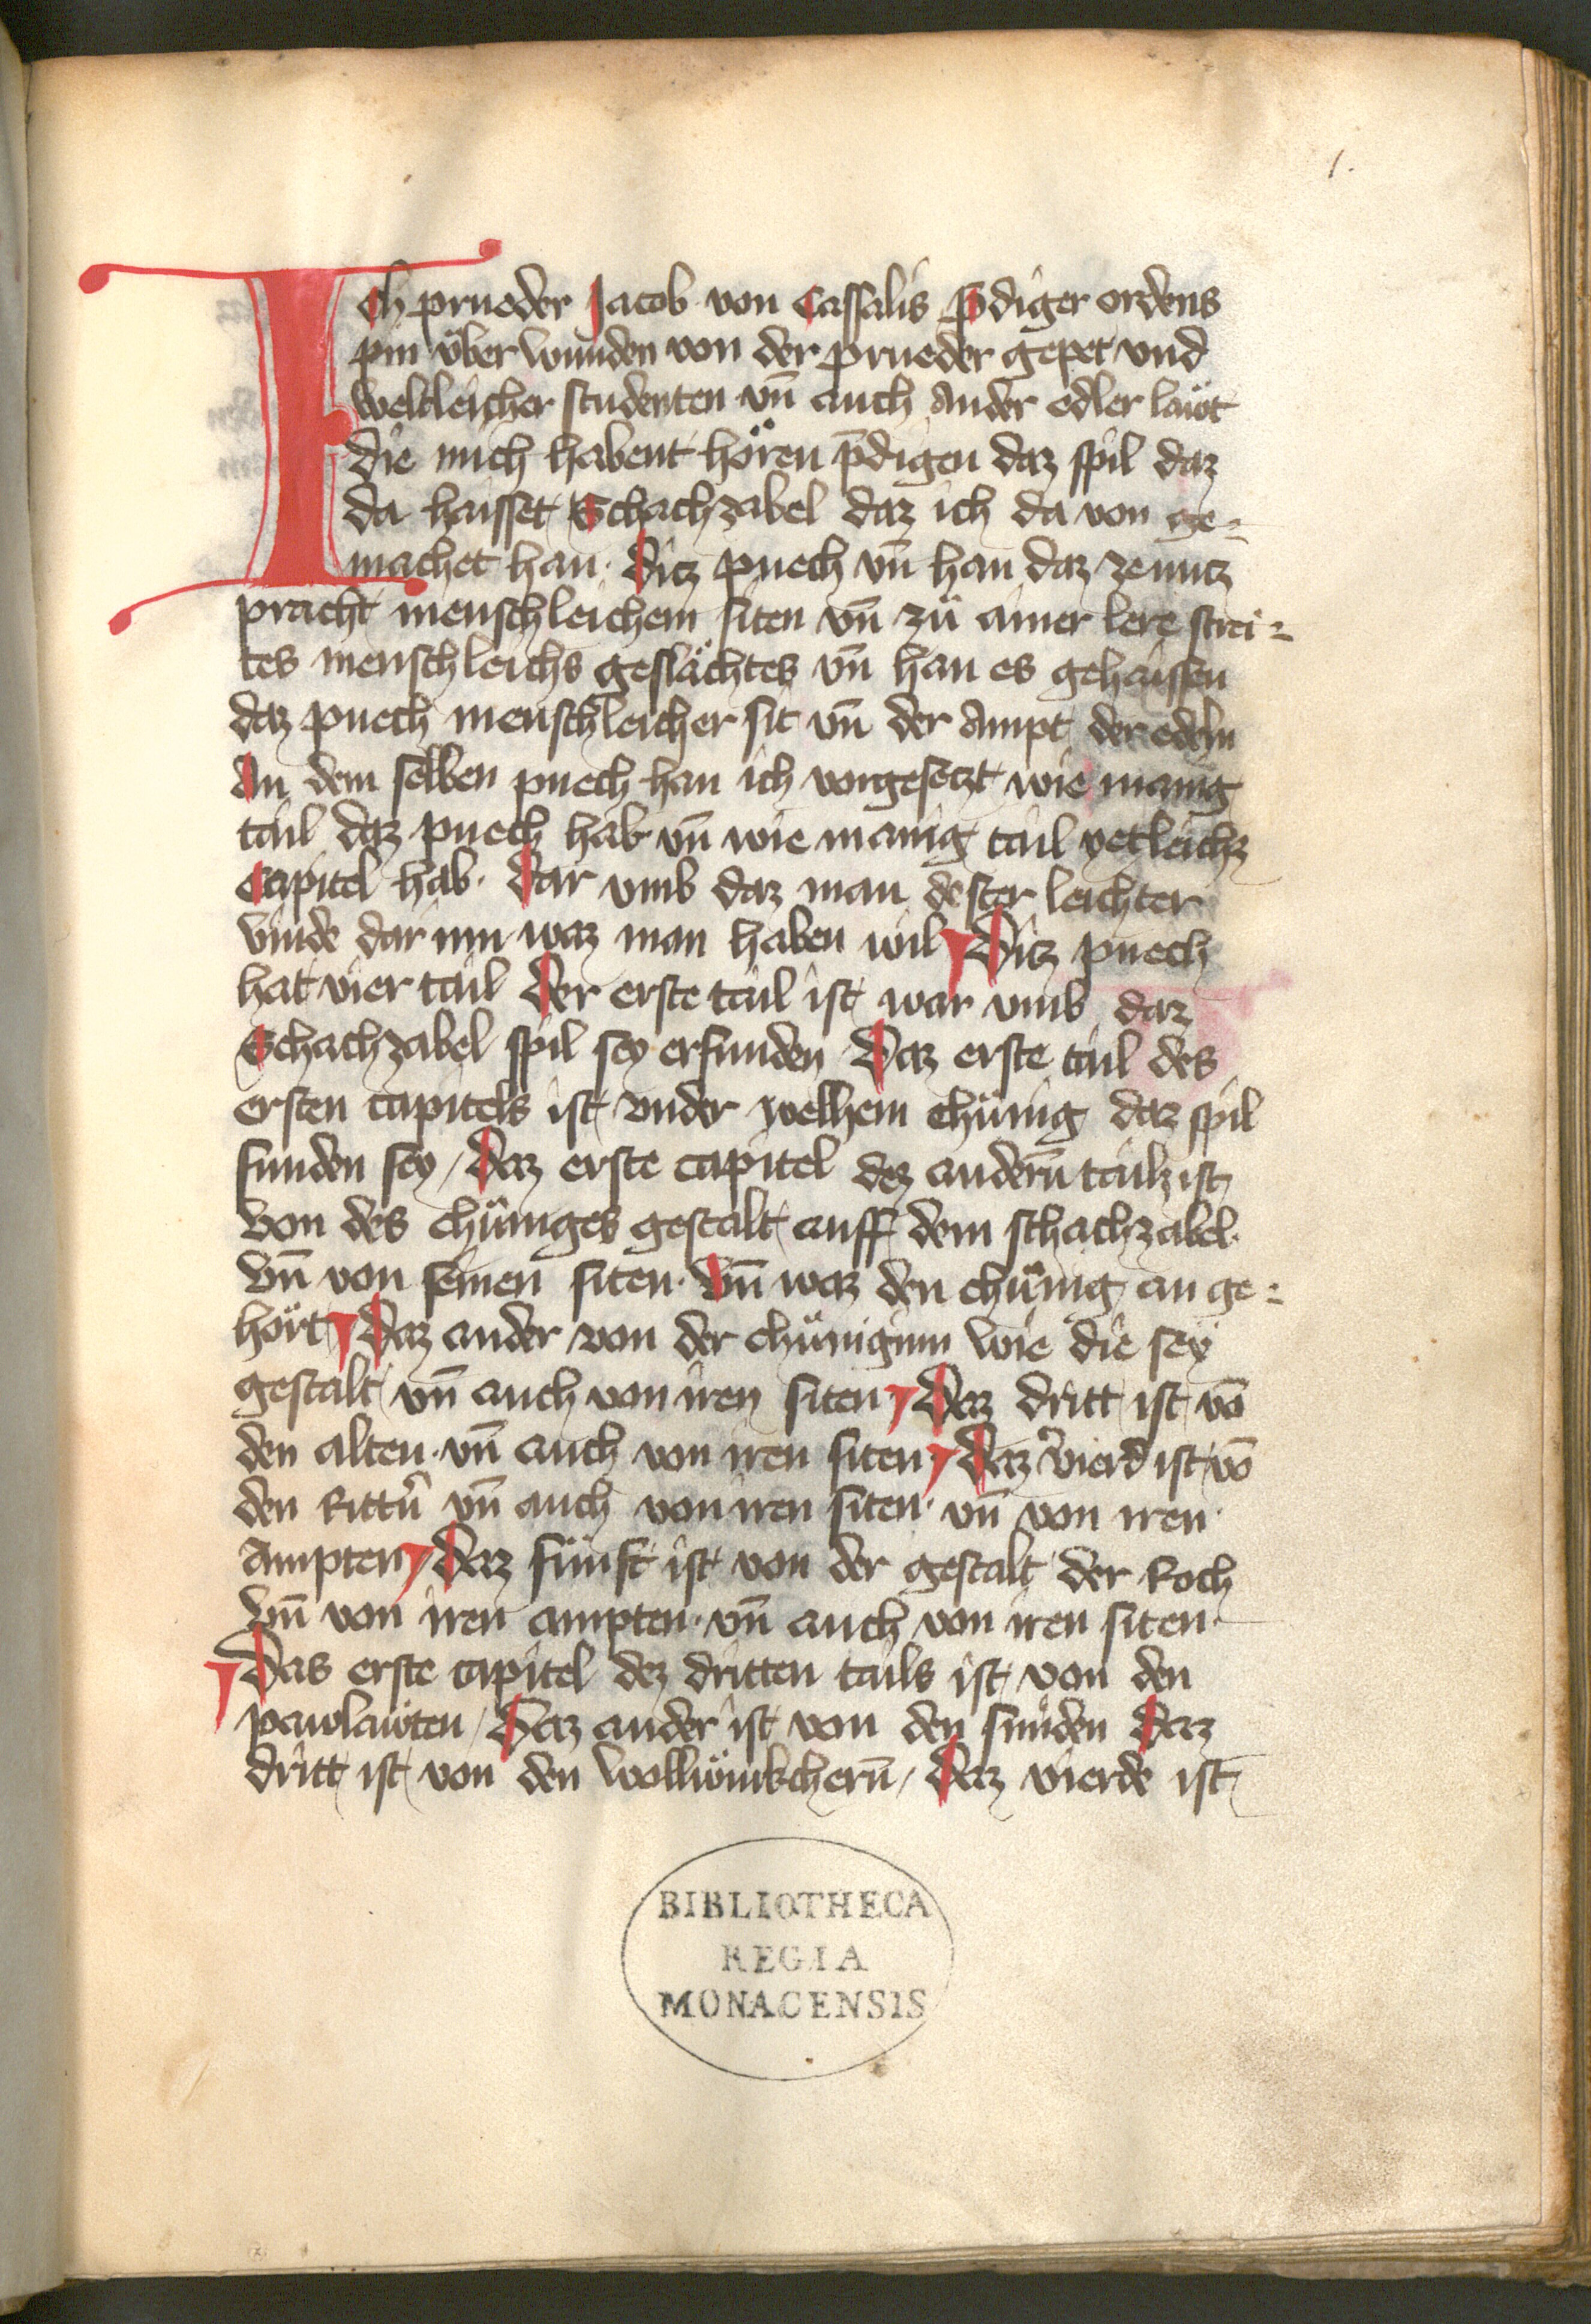 1.
Ich prueder Jacob von Cassalis p̄diger ordens
pin über wunden von der prueder gepet vnd
weltleicher studenten vn̄ auch ander edler läwt
die mich habent hören p̄digen daz spil daz
da haisset Schachzabel daz ich da von ge-
machet han. Ditz puech vn̄ han daz ze nutz
pracht menschleichem siten vn̄ zü ainer lere strei-
tes menschleichs geslächtes vn̄ han es gehaissen
daz puech menschleicher sit vn̄ der Ampt der edeln
An dem selben puech han ich vorgesetzt wie manig
tail daz puech hab vn̄ wie manig tail yetleichz
Capitel hab. Dar vmb daz man dester leichter
vinde dar inn waz man haben wil Ditz puech
hat vier tail Der erste tail ist war vmb daz
Schachzabel spil sey erfunden Daz erste tail des
ersten capitels ist vnder welhem chünig daz spil
funden sey / Daz erste capitel dez andern̄ tailz ist
von des chüniges gestalt auff dem schachzabel.
Vn̄ von seinen siten. Vn̄ waz den chünig an ge-
hört Daz ander von der chüniginn wie die sey
gestalt vn̄ auch von iren siten Daz dritt ist vō
den alten. vn̄ auch von iren siten Daz vierd ist vō
den Rittn̄ vn̄ auch von iren siten. vn̄ von iren
Ampten Daz fünft ist von der gestalt der Roch
Vn̄ von iren ampten. vn̄ auch von iren siten.
Das erste capitel dez dritten tails ist von den
pawläwten / Daz ander ist von den smiden Daz
dritt ist von den wollwürkchern̄ / Daz vierde ist
BIBLIOTHECA
REGIA
MONACENSIS